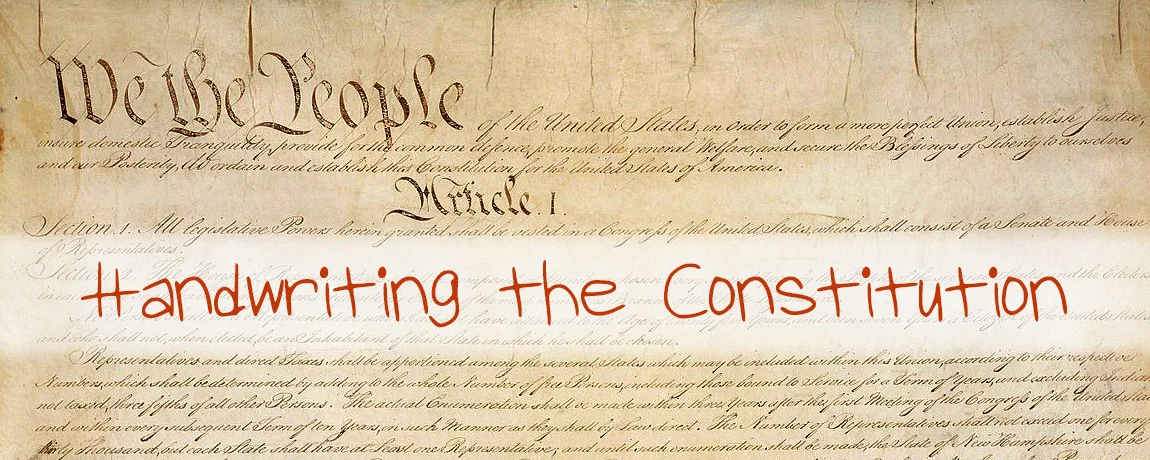 We the People of the United States, in Order to form a more perfect Union, establish Justice,
insure domestic Tranquility, provide for the common defence, promote the general Welfare, and secure the Blessings of Liberty to ourselves
and our Posterity, do ordain and establish this Constitution for the United States of America.
Article. I.
Section. 1. All legislative Powers herein granted shall be vested in a Congress of the United States, which shall consist of a Senate and House
of Representatives.
Handwriting the Constitution
and who shall not, when elected, be an Inhabitant of that State in which he shall be chosen.
Representatives and direct Taxes shall be apportioned among the several States which may be included within this Union, according to their respective
Numbers, which shall be determined by adding to the whole Number of free Persons, including those bound to Service for a Term of Years, and excluding Indians
not taxed, three fifths of all other Persons. The actual Enumeration shall be made within three Years after the first Meeting of the Congress of the United
and within every subsequent Term of ten Years, in such Manner as they shall by Law direct. The Number of Representatives shall not exceed one for every
thirty Thousand, but each State shall have at Least one Representative; and until such enumeration shall be made, the State of New Hampshire shall be